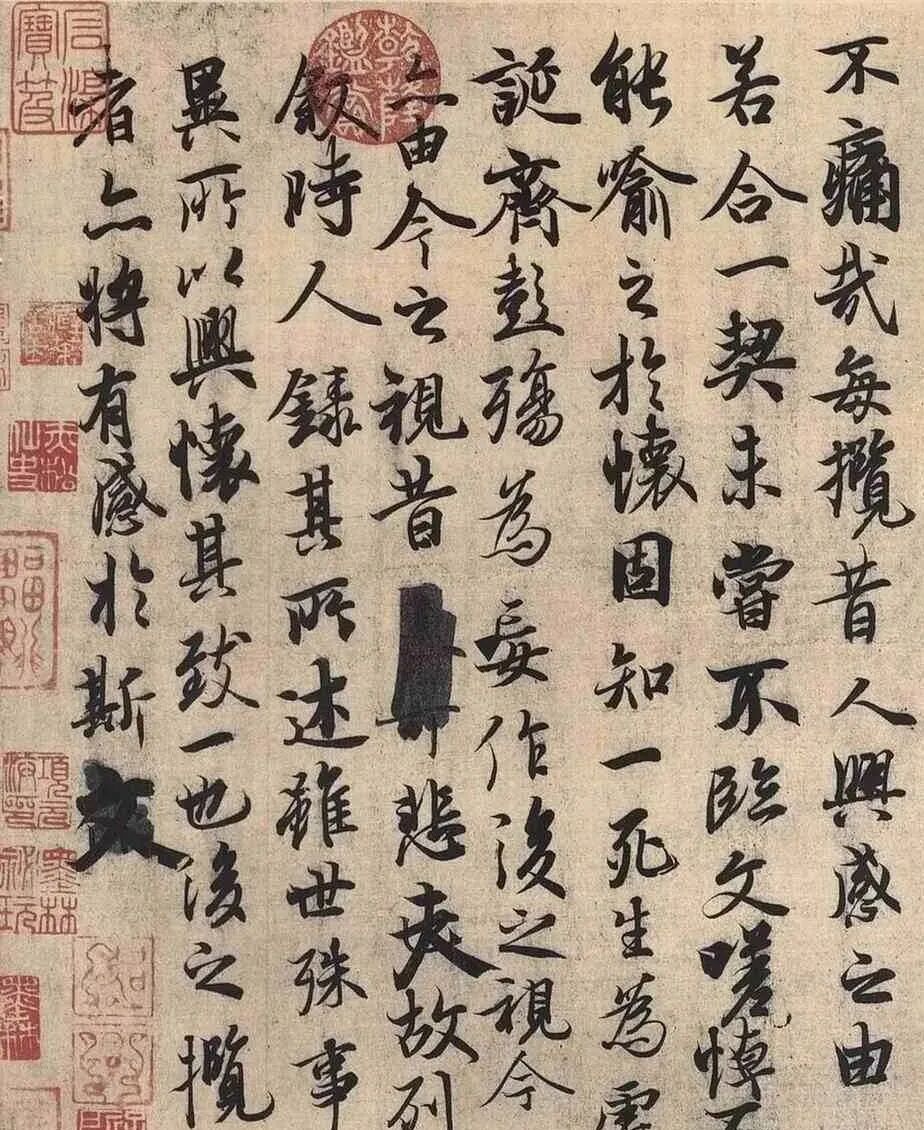 不痛哉每攬昔人興感之由
若合一契未嘗不臨文嗟悼不
能喻之於懷固知一死生為虛
誕齊彭殤為妄作後之視今
亦由今之視昔悲夫故列
敘時人錄其所述雖世殊事
異所以興懷其致一也後之攬
者亦將有感於斯文
乾隆鑑賞
石渠寶笈
項元汴印
墨林秘玩